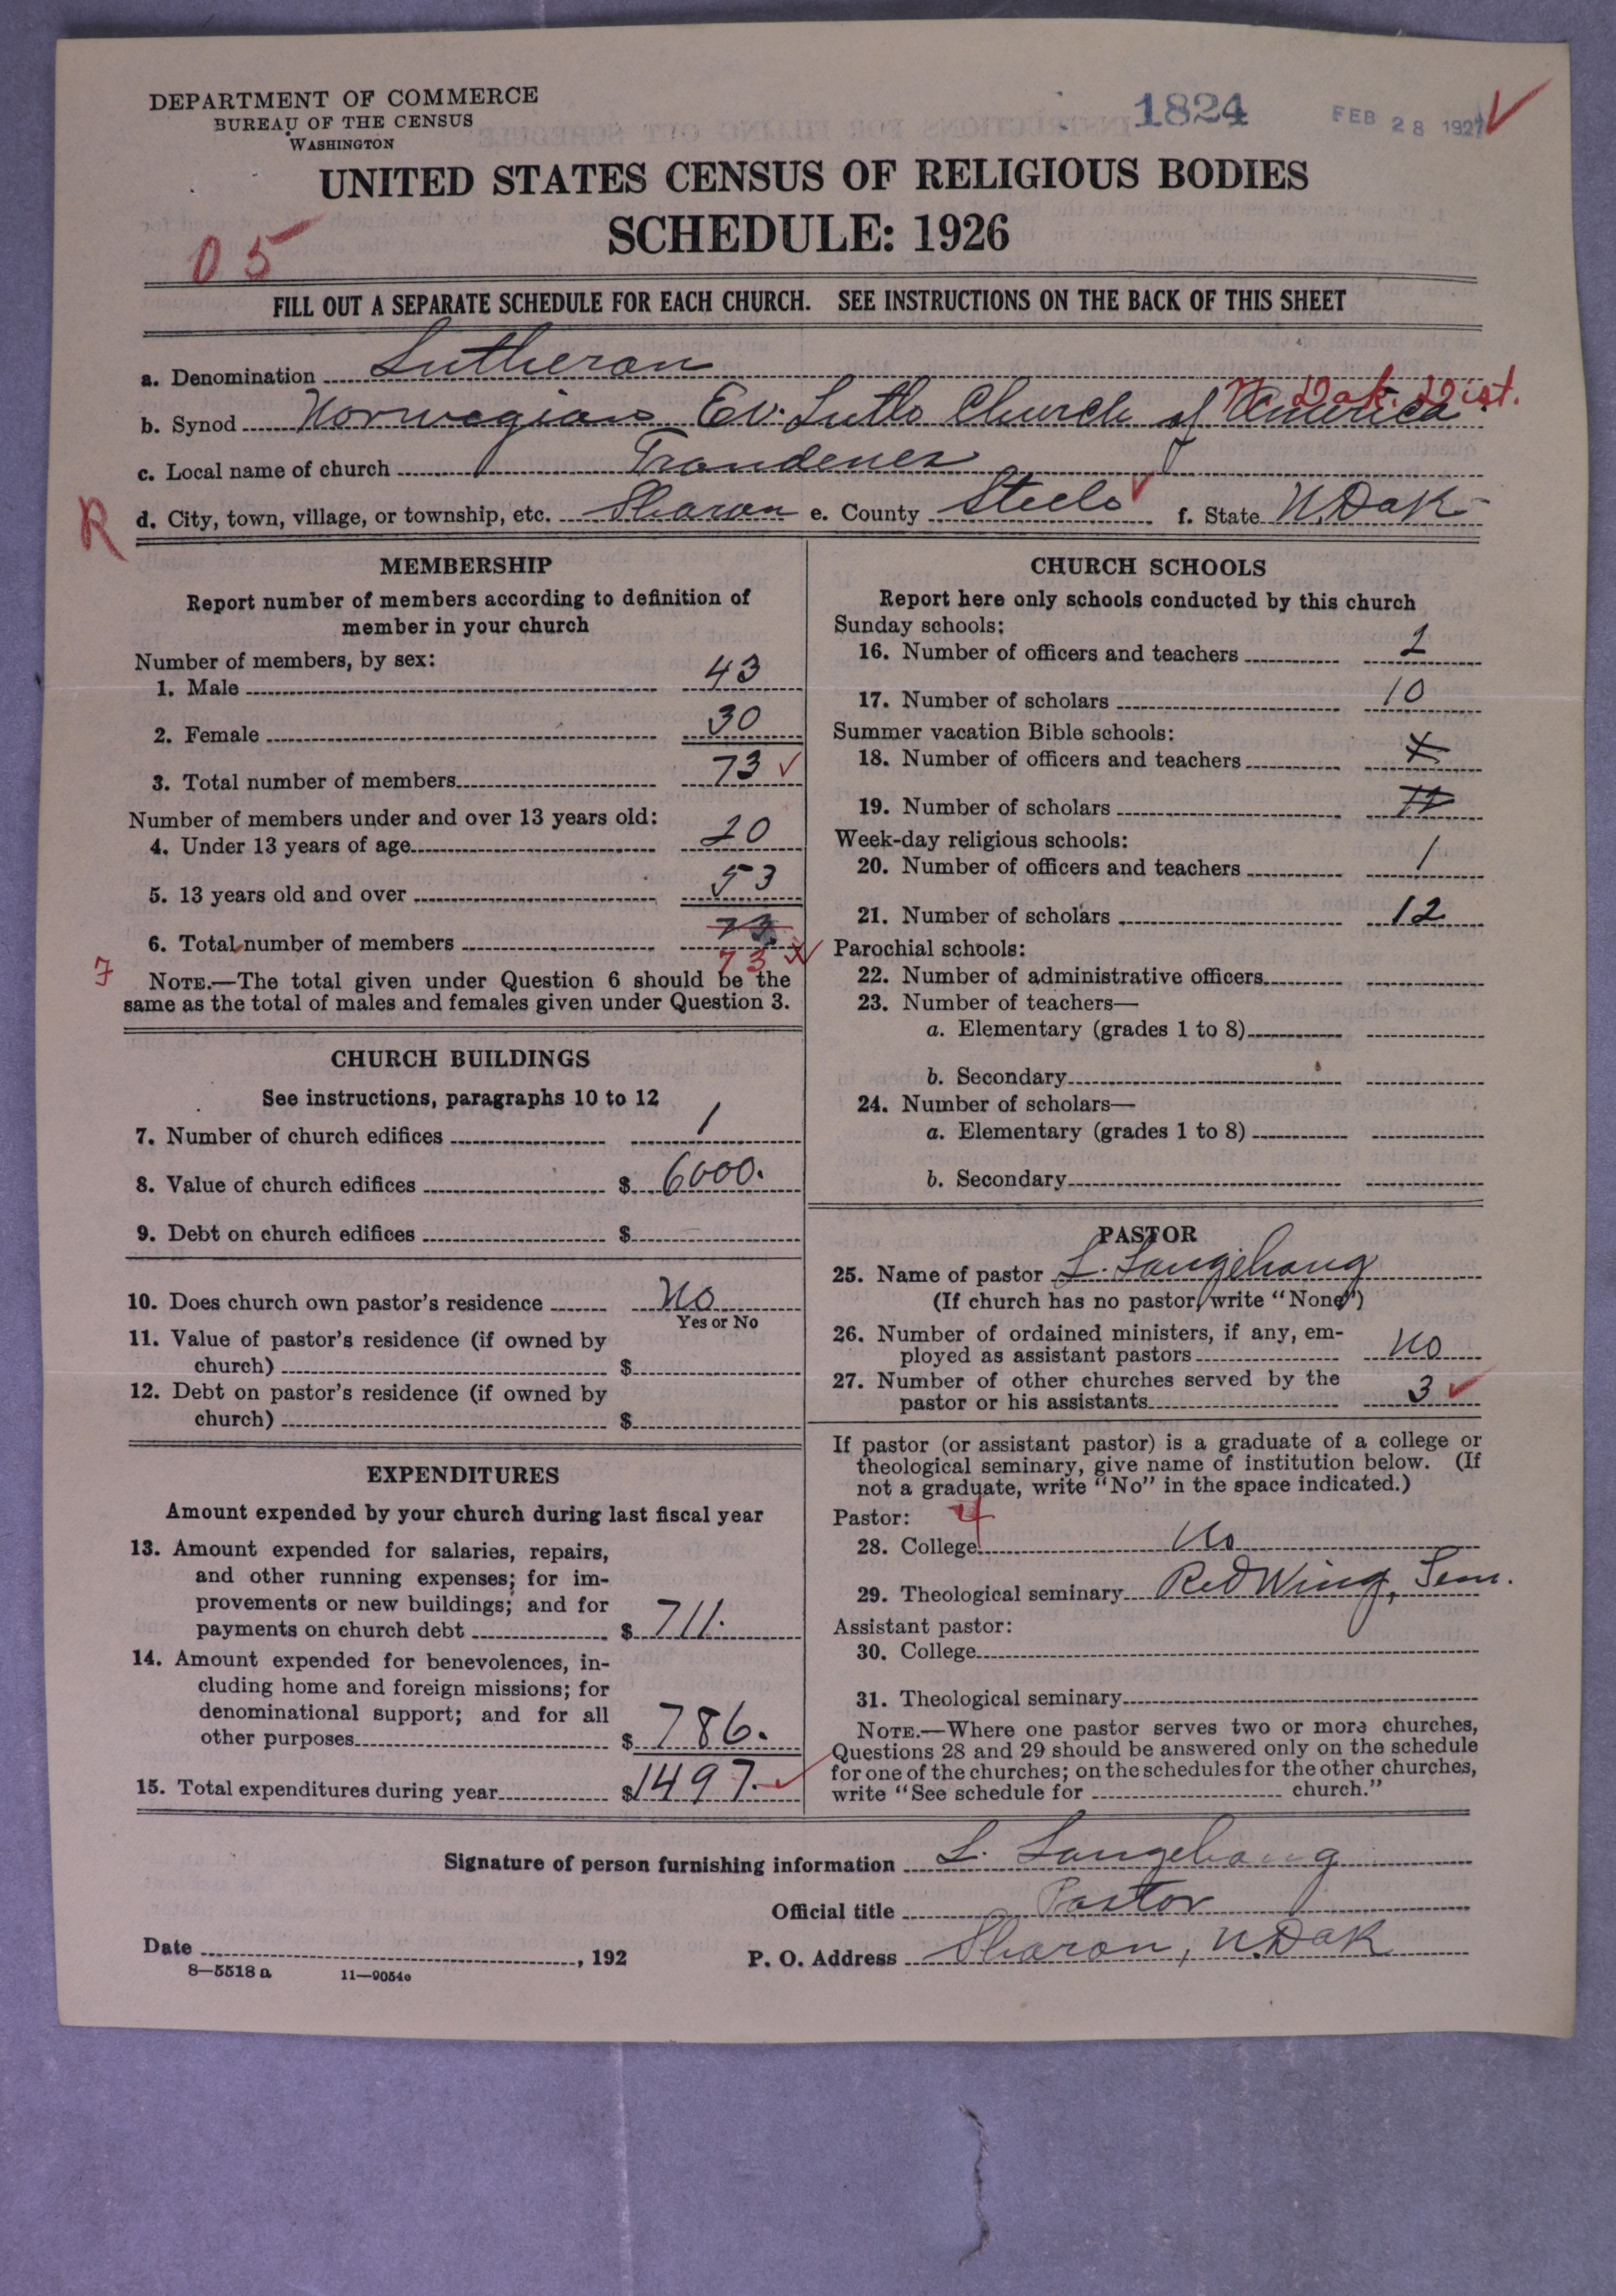 DEPARTMENT OF COMMERCE
BUREAU OF THE CENSUS
WASHINGTON
1824
FEB 28 1927
UNITED STATES CENSUS OF RELIGIOUS BODIES
SCHEDULE: 1926
05
FILL OUT A SEPARATE SCHEDULE FOR EACH CHURCH. SEE INSTRUCTIONS ON THE BACK OF THIS SHEET
a. Denomination Lutheran
N. Dak. Dist.
b. Synod Norwegian Ev. Luth Church of America
c. Local name of church Trondenes
R
d. City, town, village, or township, etc. Sharon e. County Steele f. State N. Dak
MEMBERSHIP
Report number of members according to definition of
member in your church
Number of members, by sex:
1. Male 43
2. Female 30
3. Total number of members 73
Number of members under and over 13 years old:
4. Under 13 years of age 20
5. 13 years old and over 53
6. Total number of members 73
73
7
NOTE.—The total given under Question 6 should be the
same as the total of males and females given under Question 3.
CHURCH BUILDINGS
See instructions, paragraphs 10 to 12
7. Number of church edifices 1
8. Value of church edifices $ 6000.
9. Debt on church edifices $
10. Does church own pastor's residence No
Yes or No
11. Value of pastor's residence (if owned by
church) $
12. Debt on pastor's residence (if owned by
church) $
EXPENDITURES
Amount expended by your church during last fiscal year
13. Amount expended for salaries, repairs,
and other running expenses; for im-
provements or new buildings; and for
payments on church debt $ 711.
14. Amount expended for benevolences, in-
cluding home and foreign missions; for
denominational support; and for all
other purposes $ 786.
15. Total expenditures during year $ 1497.
CHURCH SCHOOLS
Report here only schools conducted by this church
Sunday schools:
16. Number of officers and teachers 2
17. Number of scholars 10
Summer vacation Bible schools:
18. Number of officers and teachers
19. Number of scholars
Week-day religious schools:
20. Number of officers and teachers 1
21. Number of scholars 12
Parochial schools:
22. Number of administrative officers
23. Number of teachers—
a. Elementary (grades 1 to 8)
b. Secondary
24. Number of scholars—
a. Elementary (grades 1 to 8)
b. Secondary
PASTOR
25. Name of pastor L. Langehaug
(If church has no pastor, write "None")
26. Number of ordained ministers, if any, em-
ployed as assistant pastors No
27. Number of other churches served by the
pastor or his assistants 3
If pastor (or assistant pastor) is a graduate of a college or
theological seminary, give name of institution below. (If
not a graduate, write "No" in the space indicated.)
Pastor: 4
28. College No
29. Theological seminary Red Wing, Sem.
Assistant pastor:
30. College
31. Theological seminary
NOTE.—Where one pastor serves two or more churches,
Questions 28 and 29 should be answered only on the schedule
for one of the churches; on the schedules for the other churches,
write "See schedule for church."
Signature of person furnishing information L. Langehaug
Official title Pastor
Date , 192
P. O. Address Sharon, N. Dak
8—5518 a 11—9054e